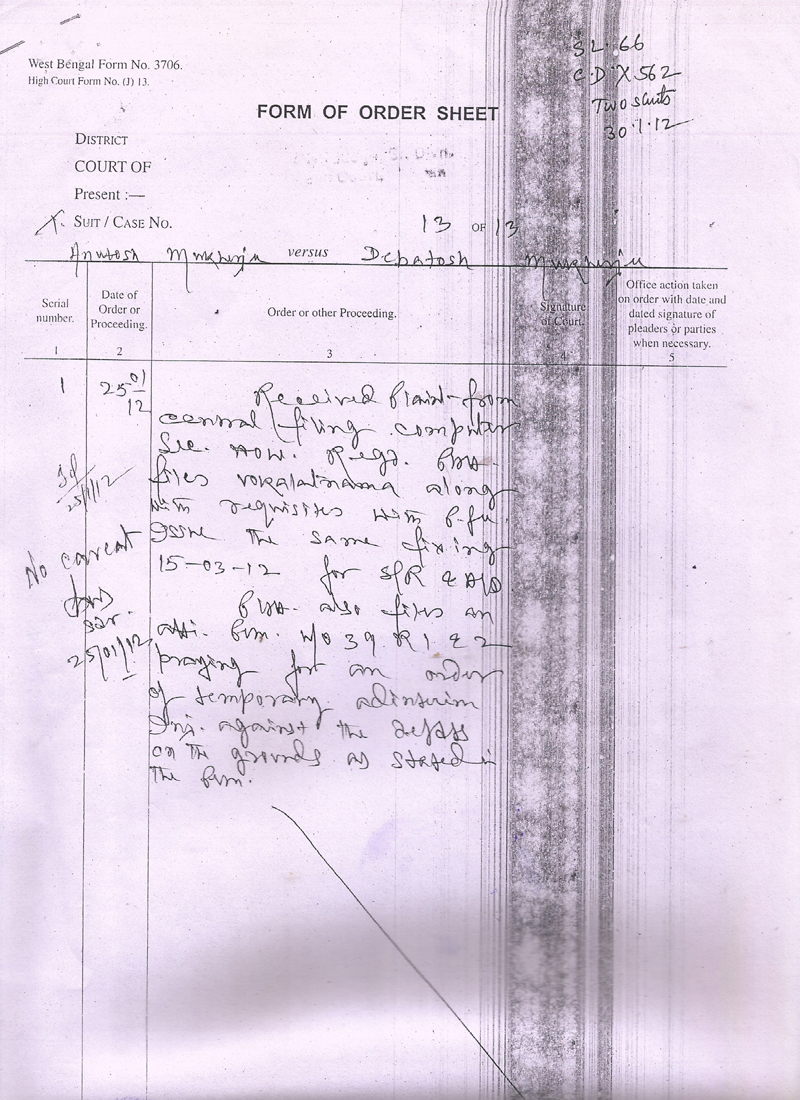 SL. 66
C.D. X 562
Two suits
30.1.12
West Bengal Form No. 3706.
High Court Form No. (J) 13.
FORM OF ORDER SHEET
DISTRICT
COURT OF
Present :—
X. SUIT / CASE NO. 13 OF 13
Anutosh Mukherju versus Debatosh Mukherju
Serial number.
Date of Order or Proceeding.
Order or other Proceeding.
Signature of Court.
Office action taken on order with date and dated signature of pleaders or parties when necessary.
1 2 3 4 5
1 25 01/12
Received Plaint from
central filing computer
Sec. now. Regr.
files vokalatnama along
with requisites with P.fee.
Issue the same fixing
15-03-12 for S/R & A/D
also files an
U/O 39 R 1 & 2
praying for an order
of temporary adinterim
Inj. against the defts
on the grounds as stated in
the
25/1/12
No caveat
25/01/12